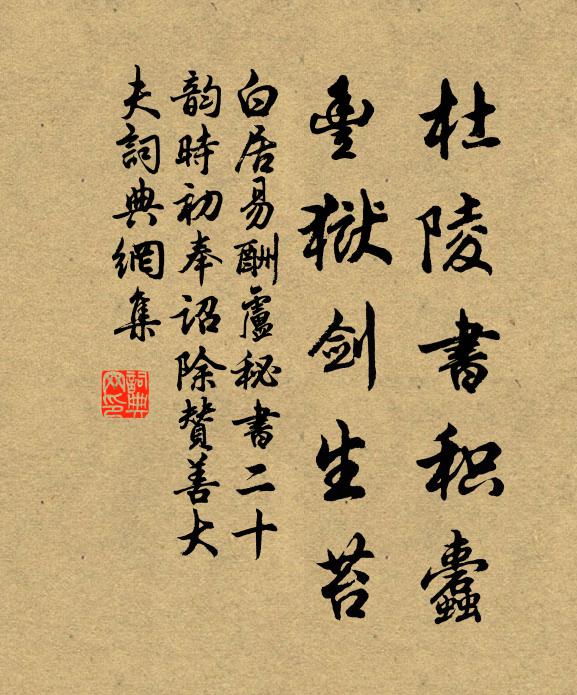 杜陵書积蠹
豐獄剑生苔
白居易酬盧秘書二十
韵時初奉诏除贊善大
夫詞典網集
詞典
网印